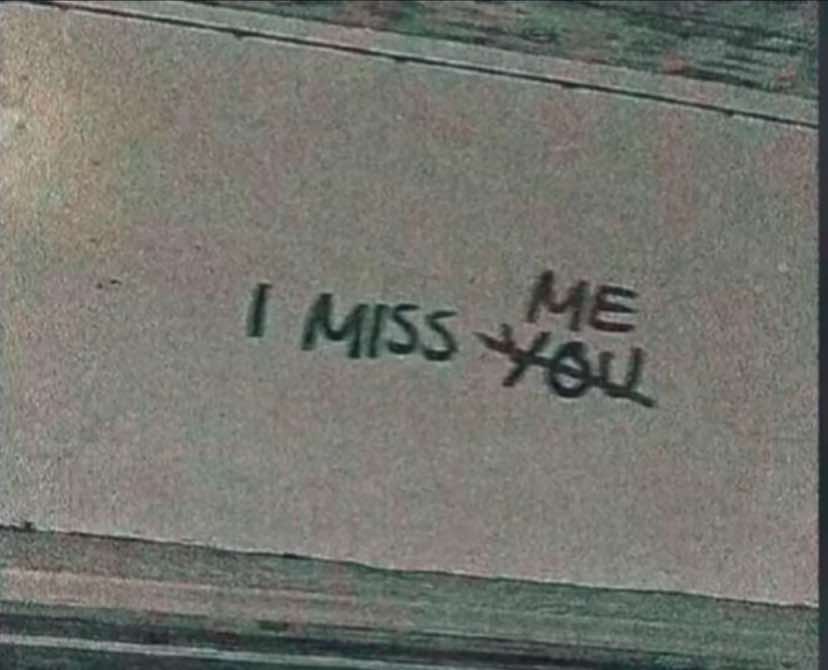 I MISS YOU
ME